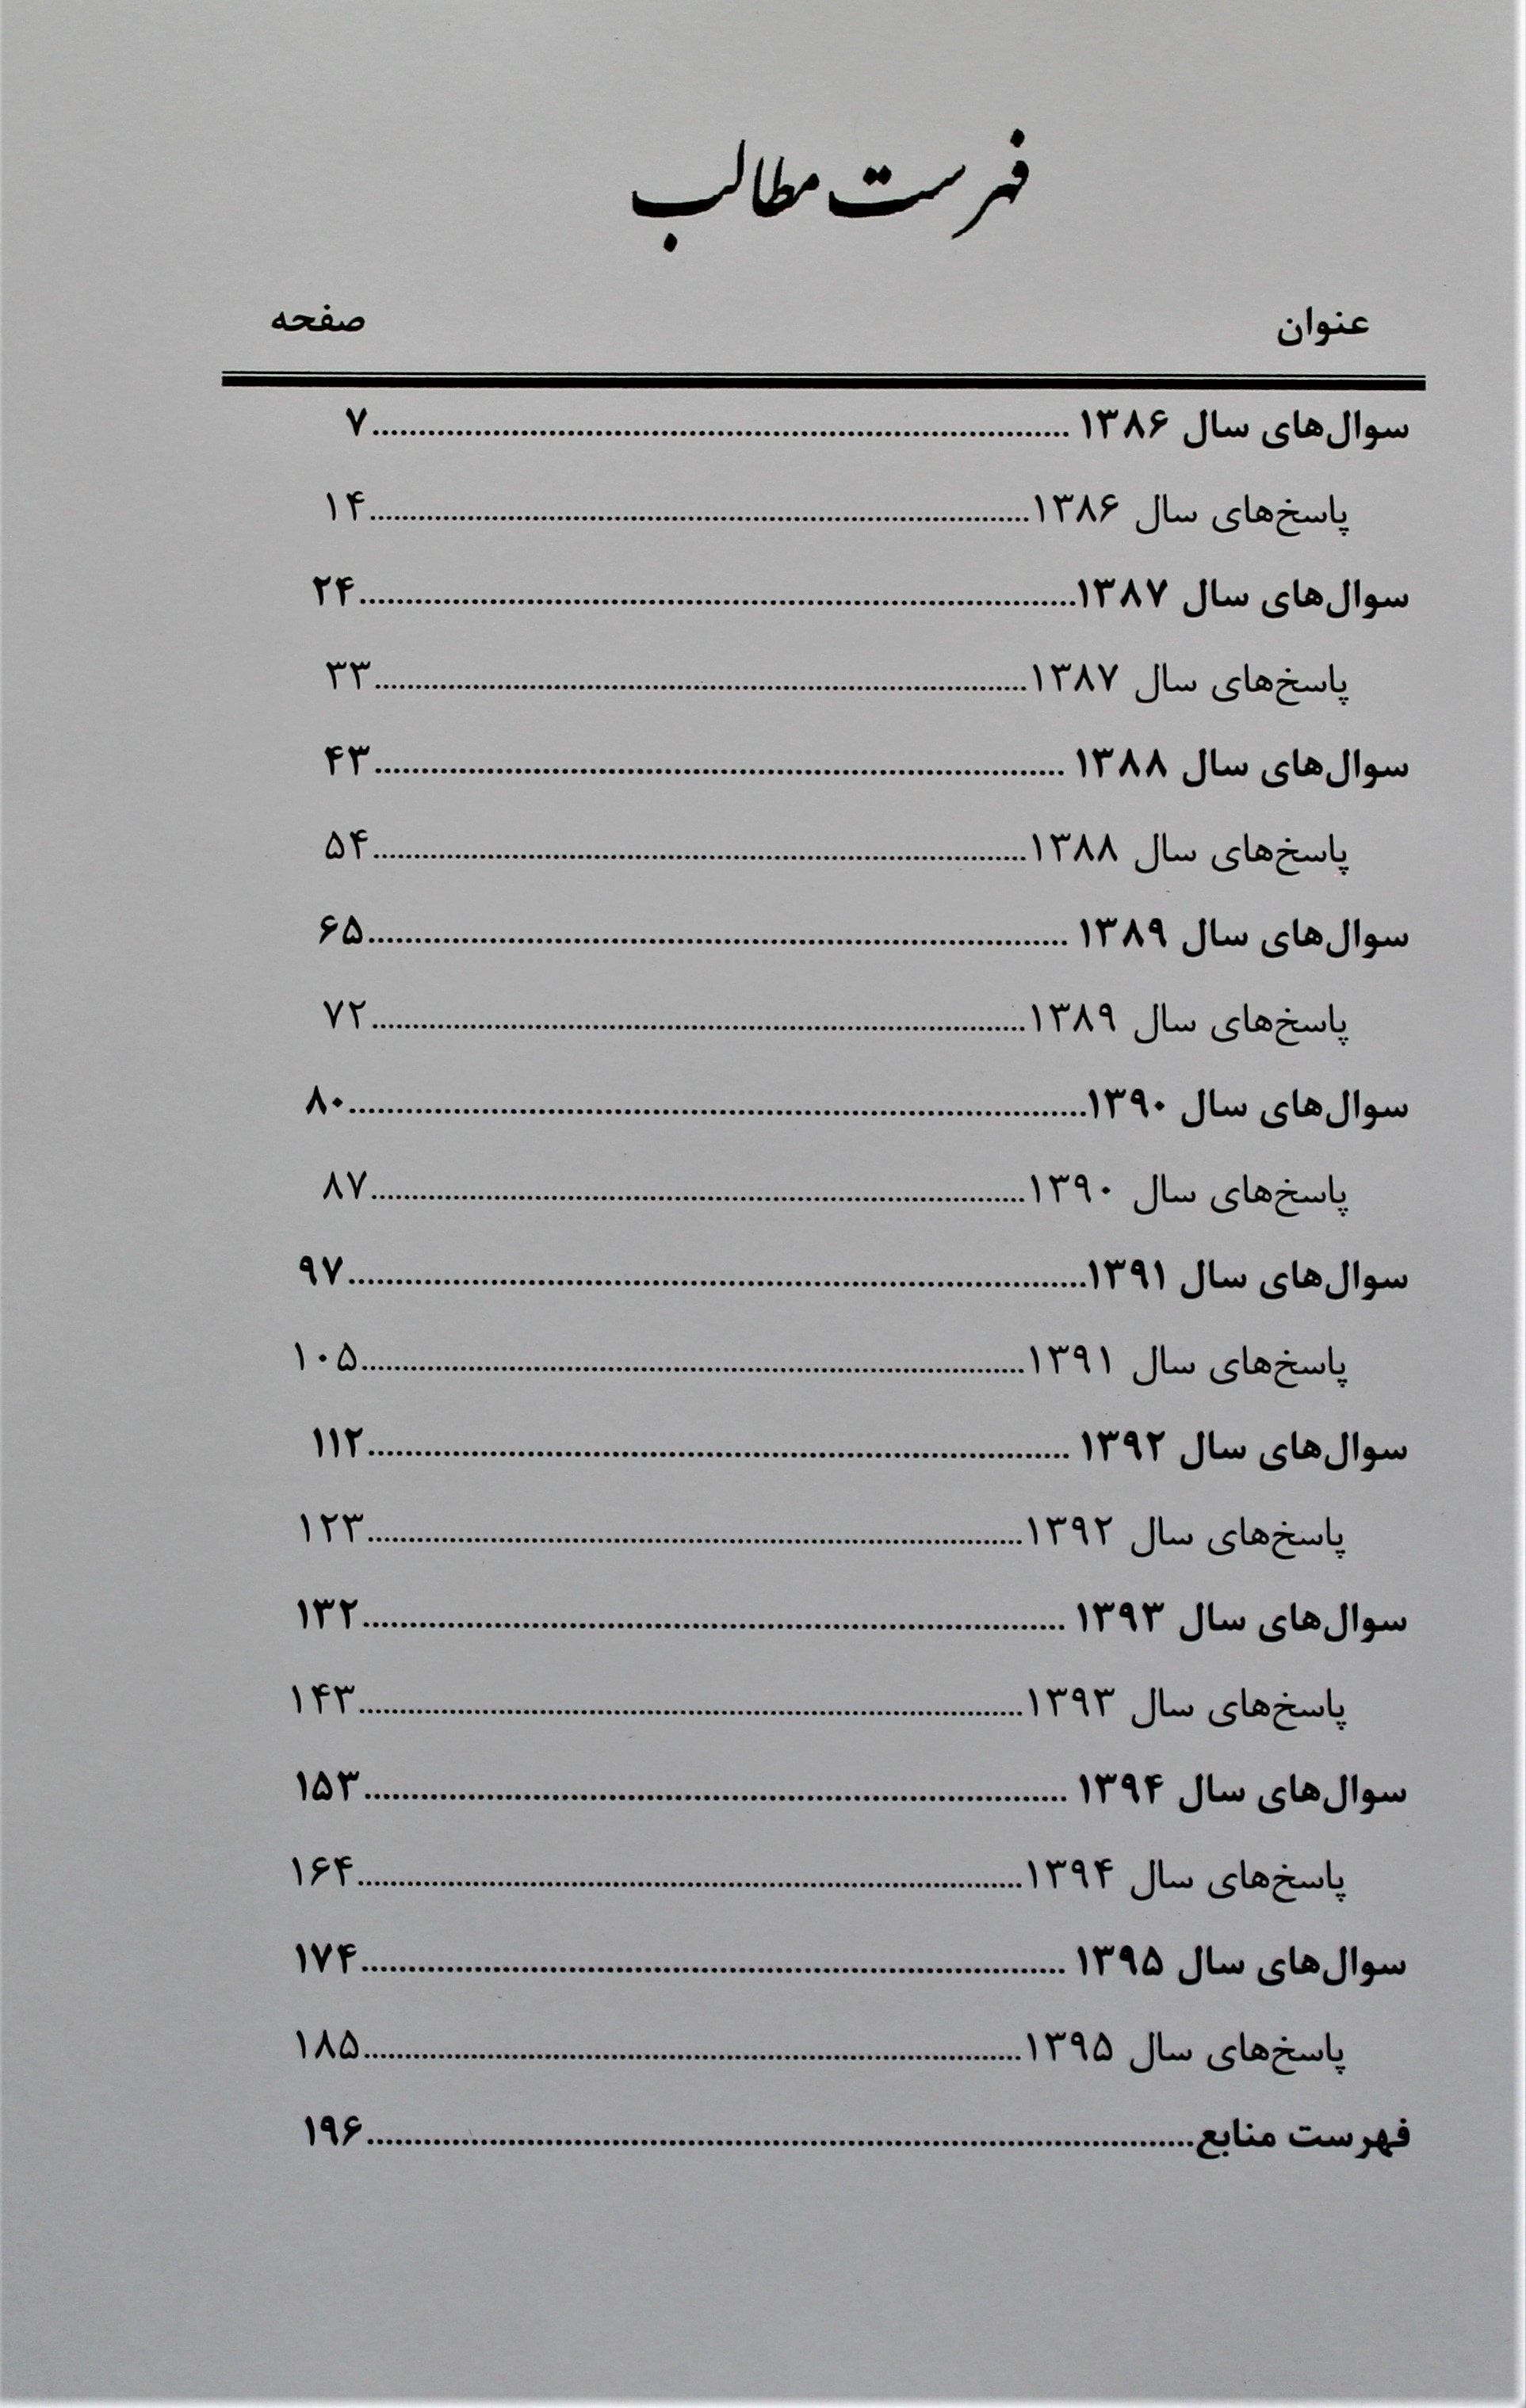 فهرست مطالب
عنوان صفحه
سوال‌های سال ۱۳۸۶ ........ ۷
پاسخ‌های سال ۱۳۸۶ ........ ۱۴
سوال‌های سال ۱۳۸۷ ........ ۲۴
پاسخ‌های سال ۱۳۸۷ ........ ۳۳
سوال‌های سال ۱۳۸۸ ........ ۴۳
پاسخ‌های سال ۱۳۸۸ ........ ۵۴
سوال‌های سال ۱۳۸۹ ........ ۶۵
پاسخ‌های سال ۱۳۸۹ ........ ۷۲
سوال‌های سال ۱۳۹۰ ........ ۸۰
پاسخ‌های سال ۱۳۹۰ ........ ۸۷
سوال‌های سال ۱۳۹۱ ........ ۹۷
پاسخ‌های سال ۱۳۹۱ ........ ۱۰۵
سوال‌های سال ۱۳۹۲ ........ ۱۱۲
پاسخ‌های سال ۱۳۹۲ ........ ۱۲۳
سوال‌های سال ۱۳۹۳ ........ ۱۳۲
پاسخ‌های سال ۱۳۹۳ ........ ۱۴۳
سوال‌های سال ۱۳۹۴ ........ ۱۵۳
پاسخ‌های سال ۱۳۹۴ ........ ۱۶۴
سوال‌های سال ۱۳۹۵ ........ ۱۷۴
پاسخ‌های سال ۱۳۹۵ ........ ۱۸۵
فهرست منابع ........ ۱۹۶